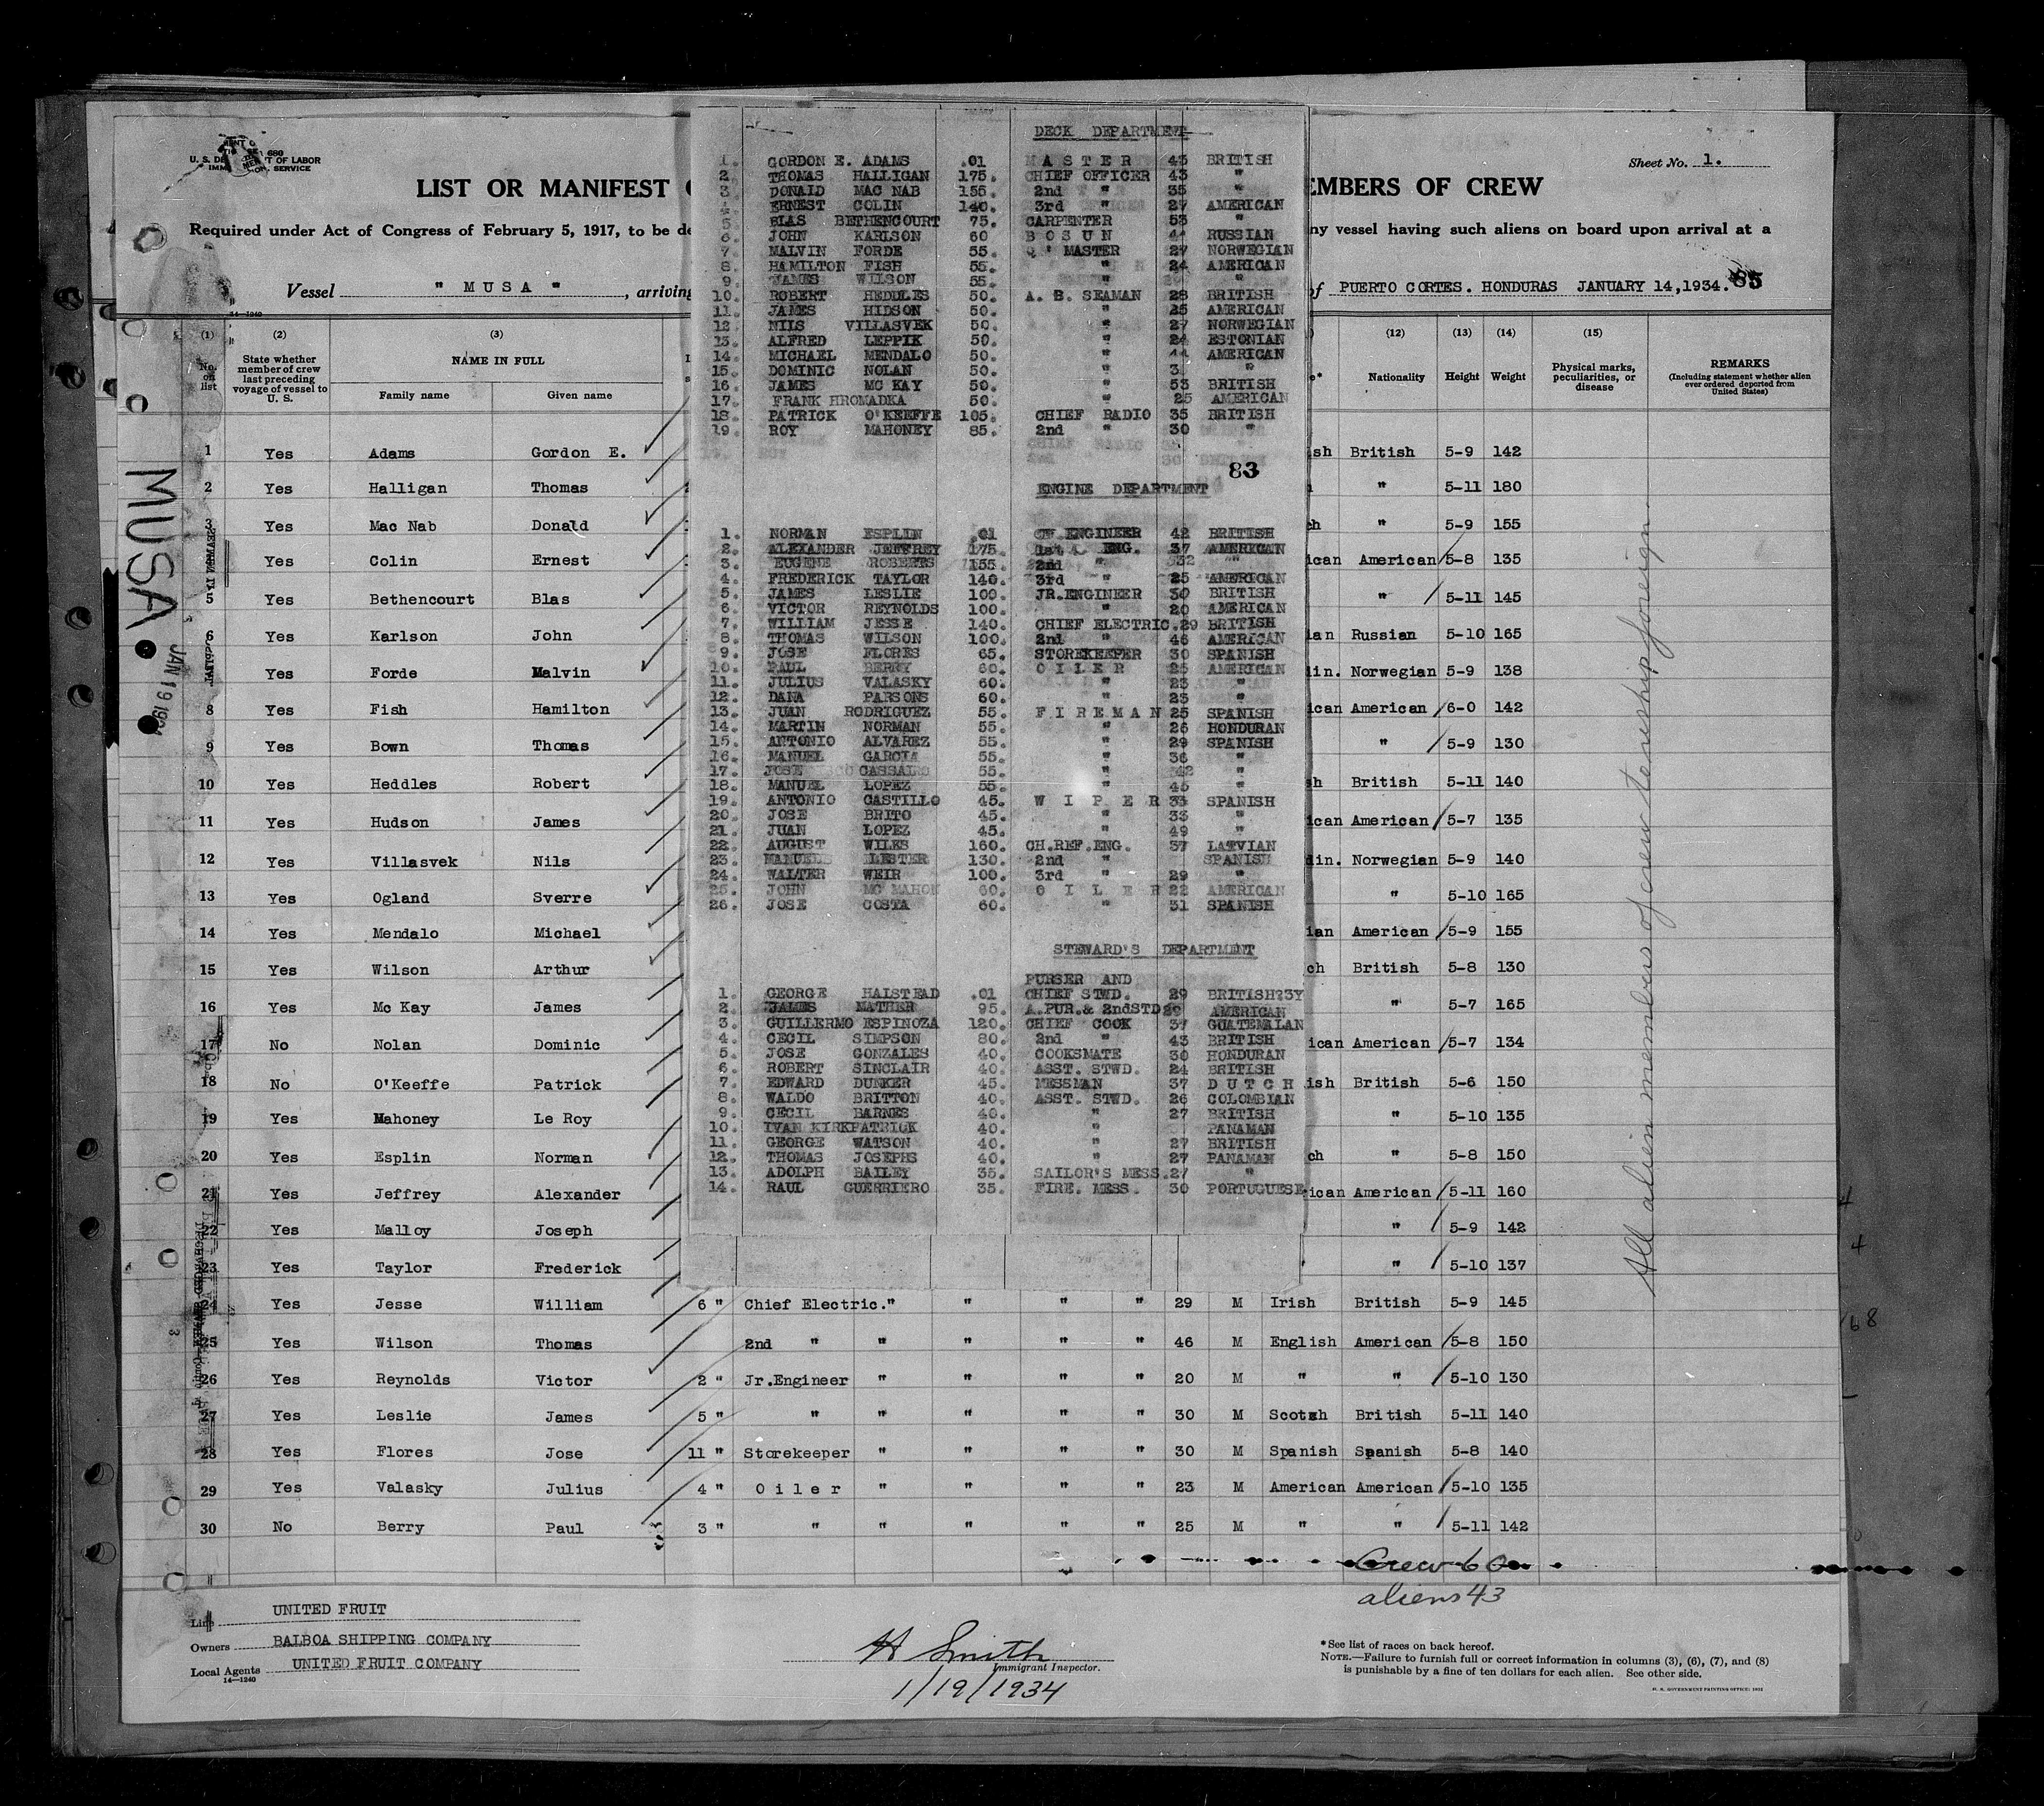 U. S. DE T OF LABOR
SERVICE
Sheet No. 1.
LIST OR MANIFEST EMBERS OF CREW
Required under Act of Congress of February 5, 1917, to be de ny vessel having such aliens on board upon arrival at a
Vessel " MUSA " , arriving of PUERTO CORTES. HONDURAS JANUARY 14,1934. 85
14—1240
(1) (2) (3) (12) (13) (14) (15)
No. on list State whether member of crew last preceding voyage of vessel to U. S. NAME IN FULL Nationality Height Weight Physical marks, peculiarities, or disease REMARKS (Including statement whether alien ever ordered deported from United States)
Family name Given name
1 Yes Adams Gordon E. sh British 5-9 142
2 Yes Halligan Thomas " 5-11 180
3 Yes Mac Nab Donald ch " 5-9 155
4 Yes Colin Ernest ican American 5-8 135
5 Yes Bethencourt Blas " 5-11 145
6 Yes Karlson John ian Russian 5-10 165
7 Yes Forde Malvin din. Norwegian 5-9 138
8 Yes Fish Hamilton ican American 6-0 142
9 Yes Bown Thomas " 5-9 130
10 Yes Heddles Robert sh British 5-11 140
11 Yes Hudson James ican American 5-7 135
12 Yes Villasvek Nils din. Norwegian 5-9 140
13 Yes Ogland Sverre " 5-10 165
14 Yes Mendalo Michael ian American 5-9 155
15 Yes Wilson Arthur ch British 5-8 130
16 Yes Mc Kay James " 5-7 165
17 No Nolan Dominic ican American 5-7 134
18 No O'Keeffe Patrick ish British 5-6 150
19 Yes Mahoney Le Roy " 5-10 135
20 Yes Esplin Norman ch " 5-8 150
21 Yes Jeffrey Alexander ican American 5-11 160
22 Yes Malloy Joseph " 5-9 142
23 Yes Taylor Frederick " 5-10 137
24 Yes Jesse William 6 " Chief Electric. " " " " 29 M Irish British 5-9 145
25 Yes Wilson Thomas 2nd " " " " 46 M English American 5-8 150
26 Yes Reynolds Victor 2 " Jr.Engineer " " " 20 M " " 5-10 130
27 Yes Leslie James 5 " " " " " 30 M Scotch British 5-11 140
28 Yes Flores Jose 11 " Storekeeper " " " 30 M Spanish Spanish 5-8 140
29 Yes Valasky Julius 4 " Oiler " " " 23 M American American 5-10 135
30 No Berry Paul 3 " " " " " 25 M " " 5-11 142
DECK DEPARTMENT
1. GORDON E. ADAMS .01 MASTER 45 BRITISH
2. THOMAS HALLIGAN 175. CHIEF OFFICER 43 "
3. DONALD MAC NAB 155. 2nd " 35 "
4. ERNEST COLIN 140. 3rd " 27 AMERICAN
5. BLAS BETHENCOURT 75. CARPENTER 53 "
6. JOHN KARLSON 60 BOSUN RUSSIAN
7. MALVIN FORDE 55. Q' MASTER 27 NORWEGIAN
8. HAMILTON FISH 55. " 24 AMERICAN
9. JAMES WILSON 55. " "
10. ROBERT HEDDLES 50. A. B. SEAMAN 28 BRITISH
11. JAMES HIDSON 50. " 25 AMERICAN
12. NILS VILLASVEK 50. " 27 NORWEGIAN
13. ALFRED LEPPIK 50. " 24 ESTONIAN
14. MICHAEL MENDALO 50. " 44 AMERICAN
15. DOMINIC NOLAN 50. " "
16. JAMES MC KAY 50. " 53 BRITISH
17. FRANK HROMADKA 50. " 25 AMERICAN
18. PATRICK O'KEEFFE 105. CHIEF RADIO 35 BRITISH
19. ROY MAHONEY 85. 2nd " 30 "
83
ENGINE DEPARTMENT
1. NORMAN ESPLIN .01 CH.ENGINEER 42 BRITISH
2. ALEXANDER JEFFREY 175. 1st ENG. 37 AMERICAN
3. EUGENE ROBERTS 155. 2nd 32 "
4. FREDERICK TAYLOR 140. 3rd " 25 AMERICAN
5. JAMES LESLIE 100. JR.ENGINEER 30 BRITISH
6. VICTOR REYNOLDS 100. " 20 AMERICAN
7. WILLIAM JESSE 140. CHIEF ELECTRIC.29 BRITISH
8. THOMAS WILSON 100. 2nd " 46 AMERICAN
9. JOSE FLORES 65. STOREKEEPER 30 SPANISH
10. PAUL BERRY 60. OILER 25 AMERICAN
11. JULIUS VALASKY 60. " 23 "
12. DANA PARSONS 60. " 23 "
13. JUAN RODRIGUEZ 55. FIREMAN 25 SPANISH
14. MARTIN NORMAN 55. " 26 HONDURAN
15. ANTONIO ALVAREZ 55. " 29 SPANISH
16. MANUEL GARCIA 55. " 36 "
17. JOSE CASSAL 55. " 42 "
18. MANUEL LOPEZ 55. " 45 "
19. ANTONIO CASTILLO 45. WIPER 33 SPANISH
20. JOSE BRITO 45. " 33 "
21. JUAN LOPEZ 45. " 49 "
22. AUGUST WILKS 160. CH.REF.ENG. 37 LATVIAN
23. LESTER 130. 2nd " SPANISH
24. WALTER WEIR 100. 3rd " 29 "
25. JOHN MC MAHON 60. OILER 22 AMERICAN
26. JOSE COSTA 60. " 31 SPANISH
STEWARD'S DEPARTMENT
PURSER AND
1. GEORGE HALSTEAD .01 CHIEF STWD. 29 BRITISH
2. JAMES MATHER 95. A.PUR.& 2ndSTD AMERICAN
3. GUILLERMO ESPINOZA 120. CHIEF COOK 37 GUATEMALAN
4. CECIL SIMPSON 80. 2nd " 43 BRITISH
5. JOSE GONZALES 40. COOKSMATE 30 HONDURAN
6. ROBERT SINCLAIR 40. ASST. STWD. 24 BRITISH
7. EDWARD DUNKER 45. MESSMAN 37 DUTCH
8. WALDO BRITTON 40. ASST. STWD. 26 COLOMBIAN
9. CECIL BARNES 40. " 27 BRITISH
10. IVAN KIRKPATRICK 40. " PANAMAN
11. GEORGE WATSON 40. " 27 BRITISH
12. THOMAS JOSEPHS 40. " 27 PANAMAN
13. ADOLPH BAILEY 35. SAILOR'S MESS.27 "
14. RAUL GUERRIERO 35. FIRE. MESS. 30 PORTUGUESE
MUSA
JAN 19 193
All alien members of crew tenership foreign
Crew 60
aliens 43
Line UNITED FRUIT
Owners BALBOA SHIPPING COMPANY
Local Agents UNITED FRUIT COMPANY
14—1240
H Smith
Immigrant Inspector.
1/19/1934
*See list of races on back hereof.
NOTE.—Failure to furnish full or correct information in columns (3), (6), (7), and (8)
is punishable by a fine of ten dollars for each alien. See other side.
U. S. GOVERNMENT PRINTING OFFICE: 1932